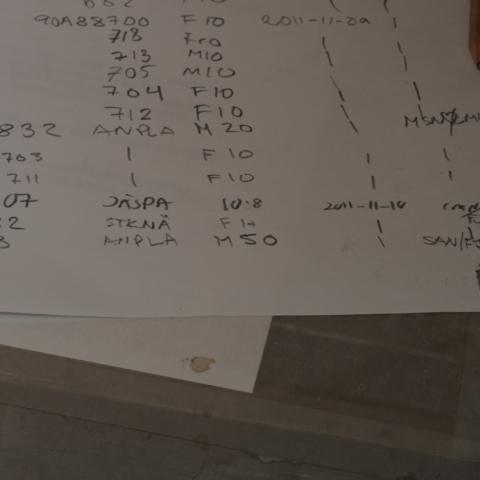 90A88700 F10 2011-11-09 \
718 F10 \
713 M10 \ \
705 M10
704 F10 \ \
712 F10
832 ANPLA M20 \
703 | F10 | \
711 | F10 | \
07 JÄSPA 10:8 2011-11-10
2 STKNÄ F10 |
3 ANPLA M50 \ SAN/FS